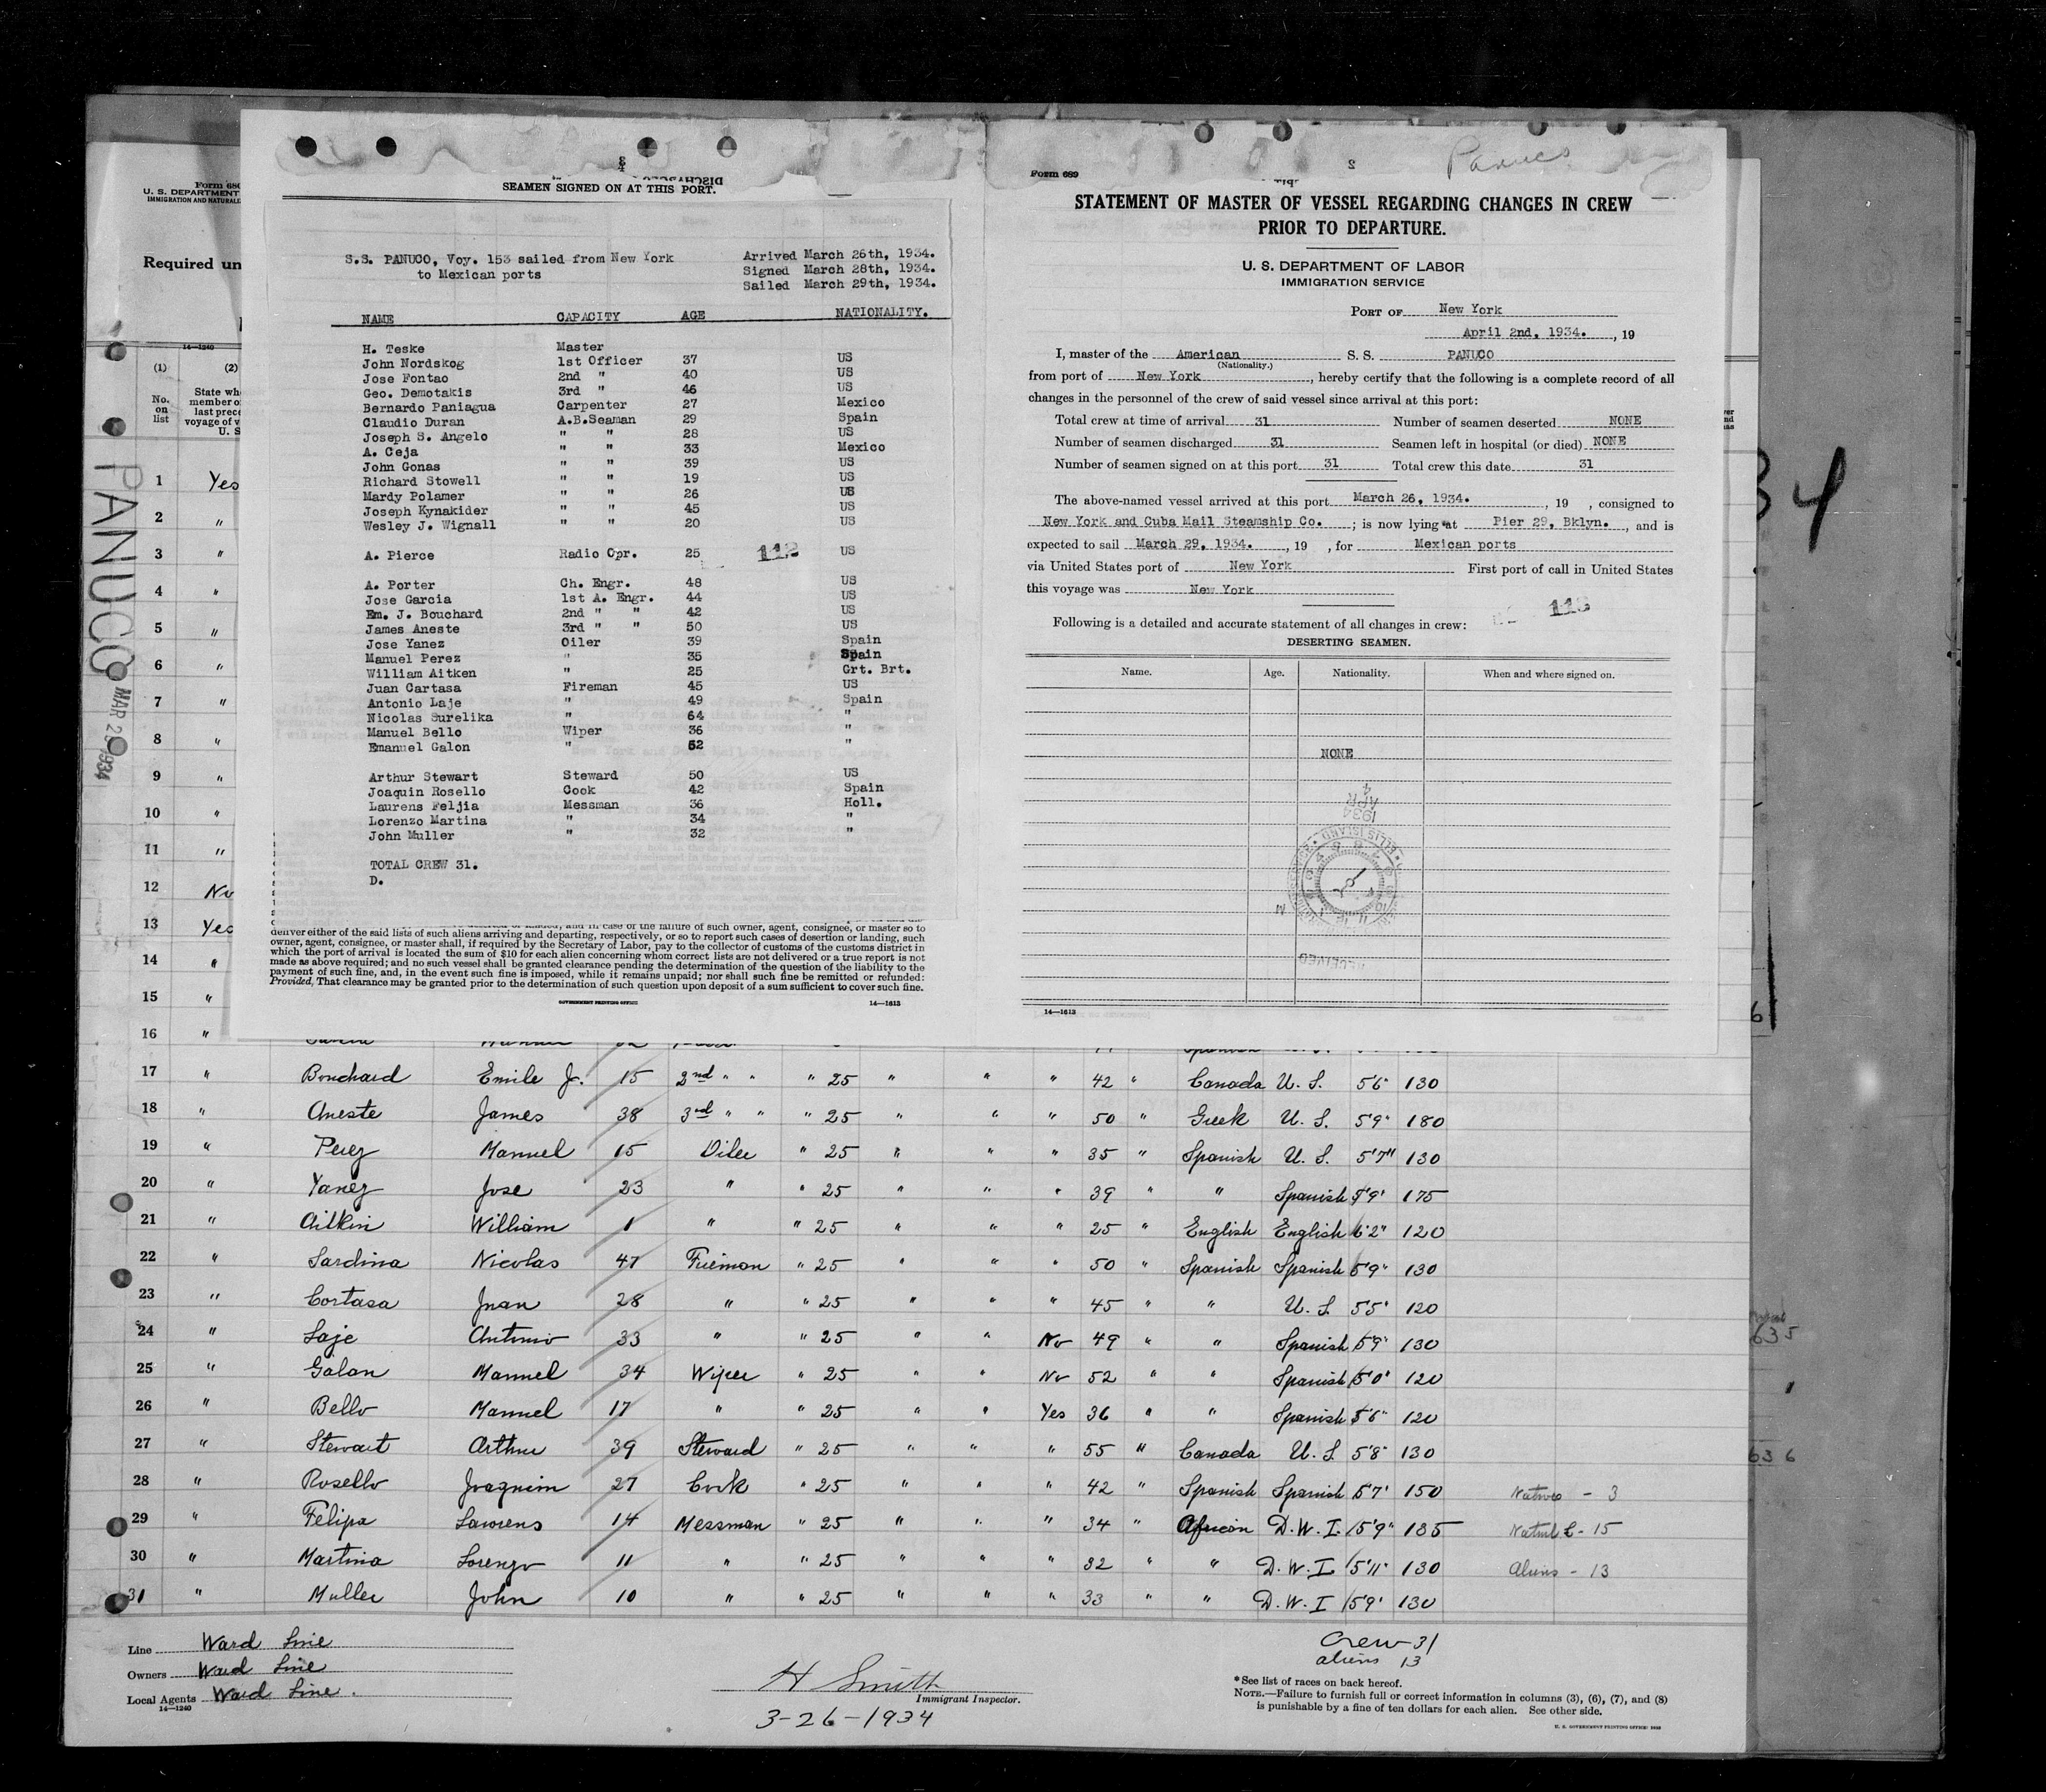 Form 680
U. S. DEPARTMENT
IMMIGRATION AND
Required un
14—1240
(1) (2)
No. on list
State wh
member o
last prece
voyage of v
U. S
PANUCO
MAR 29 1934
1 Yes
2 "
3 "
4 "
5 "
6 "
7 "
8 "
9 "
10 "
11 "
12 No
13 Yes
14 "
15 "
16 "
SEAMEN SIGNED ON AT THIS PORT.
S.S. PANUCO, Voy. 153 sailed from New York
to Mexican ports
Arrived March 26th, 1934.
Signed March 28th, 1934.
Sailed March 29th, 1934.
NAME CAPACITY AGE NATIONALITY.
H. Teske Master
John Nordskog 1st Officer 37 US
Jose Fontao 2nd " 40 US
Geo. Demotakis 3rd " 46 US
Bernardo Paniagua Carpenter 27 Mexico
Claudio Duran A.B.Seaman 29 Spain
Joseph S. Angelo " " 28 US
A. Ceja " " 33 Mexico
John Gonas " " 39 US
Richard Stowell " " 19 US
Mardy Polamer " " 26 US
Joseph Kynakider " " 45 US
Wesley J. Wignall " " 20 US
A. Pierce Radio Opr. 25 112 US
A. Porter Ch. Engr. 48 US
Jose Garcia 1st A. Engr. 44 US
Em. J. Bouchard 2nd " " 42 US
James Aneste 3rd " " 50 US
Jose Yanez Oiler 39 Spain
Manuel Perez " 35 Spain
William Aitken " 25 Grt. Brt.
Juan Cartasa Fireman 45 US
Antonio Laje " 49 Spain
Nicolas Surelika " 64 "
Manuel Bello Wiper 36 "
Emanuel Galon " 52 "
Arthur Stewart Steward 50 US
Joaquin Rosello Cook 42 Spain
Laurens Feljia Messman 36 Holl.
Lorenzo Martina " 34 "
John Muller " 32 "
TOTAL CREW 31.
D.
deliver either of the said lists of such aliens arriving and departing, respectively, or so to report such cases of desertion or landing, such
owner, agent, consignee, or master shall, if required by the Secretary of Labor, pay to the collector of customs of the customs district in
which the port of arrival is located the sum of $10 for each alien concerning whom correct lists are not delivered or a true report is not
made as above required; and no such vessel shall be granted clearance pending the determination of the question of the liability to the
payment of such fine, and, in the event such fine is imposed, while it remains unpaid; nor shall such fine be remitted or refunded:
Provided, That clearance may be granted prior to the determination of such question upon deposit of a sum sufficient to cover such fine.
GOVERNMENT PRINTING OFFICE 14—1613
Panuco
Form 689
2
STATEMENT OF MASTER OF VESSEL REGARDING CHANGES IN CREW
PRIOR TO DEPARTURE.
U. S. DEPARTMENT OF LABOR
IMMIGRATION SERVICE
PORT OF New York
April 2nd, 1934. , 19
I, master of the American S. S. PANUCO
(Nationality.)
from port of New York , hereby certify that the following is a complete record of all
changes in the personnel of the crew of said vessel since arrival at this port:
Total crew at time of arrival 31 Number of seamen deserted NONE
Number of seamen discharged 31 Seamen left in hospital (or died) NONE
Number of seamen signed on at this port 31 Total crew this date 31
The above-named vessel arrived at this port March 26, 1934. , 19 , consigned to
New York and Cuba Mail Steamship Co. ; is now lying at Pier 29, Bklyn. , and is
expected to sail March 29, 1934. , 19 , for Mexican ports
via United States port of New York First port of call in United States
this voyage was New York
Following is a detailed and accurate statement of all changes in crew:
DESERTING SEAMEN.
Name. Age. Nationality. When and where signed on.
NONE
APR 4
1934
ELLIS ISLAND
RECEIVED
14—1613
34
17 " Bouchard Emile J. 15 2nd " " " 25 " " " 42 " Canada U. S. 5'6" 130
18 " Aneste James 38 3rd " " " 25 " " " 50 " Greek U. S. 5'9" 180
19 " Perez Manuel 15 Oiler " 25 " " " 35 " Spanish U. S. 5'7" 130
20 " Yanez Jose 23 " " 25 " " " 39 " " Spanish 5'9" 175
21 " Aitkin William 1 " " 25 " " " 25 " English English 6'2" 120
22 " Sardina Nicolas 47 Fireman " 25 " " " 50 " Spanish Spanish 5'9" 130
23 " Cortasa Juan 28 " " 25 " " " 45 " " U. S. 5'5" 120
24 " Laje Antonio 33 " " 25 " " No 49 " " Spanish 5'9" 130
25 " Galan Manuel 34 Wiper " 25 " " No 52 " " Spanish 5'0" 120
26 " Bello Manuel 17 " " 25 " " Yes 36 " " Spanish 5'6" 120
27 " Stewart Arthur 39 Steward " 25 " " " 55 " Canada U. S. 5'8" 130
28 " Rosello Joaquim 27 Cook " 25 " " " 42 " Spanish Spanish 5'7" 150 Natives - 3
29 " Felipa Laurens 14 Messman " 25 " " " 34 " African D.W.I. 5'9" 135 Natul C - 15
30 " Martina Lorenzo 11 " " 25 " " " 32 " " D.W.I 5'11" 130 Aliens - 13
31 " Muller John 10 " " 25 " " " 33 " " D.W.I 5'9" 130
635
636
Line Ward Line
Owners Ward Line
Local Agents Ward Line.
14—1240
H Smith
Immigrant Inspector.
3-26-1934
Crew 31
aliens 13
*See list of races on back hereof.
NOTE.—Failure to furnish full or correct information in columns (3), (6), (7), and (8)
is punishable by a fine of ten dollars for each alien. See other side.
U. S. GOVERNMENT PRINTING OFFICE